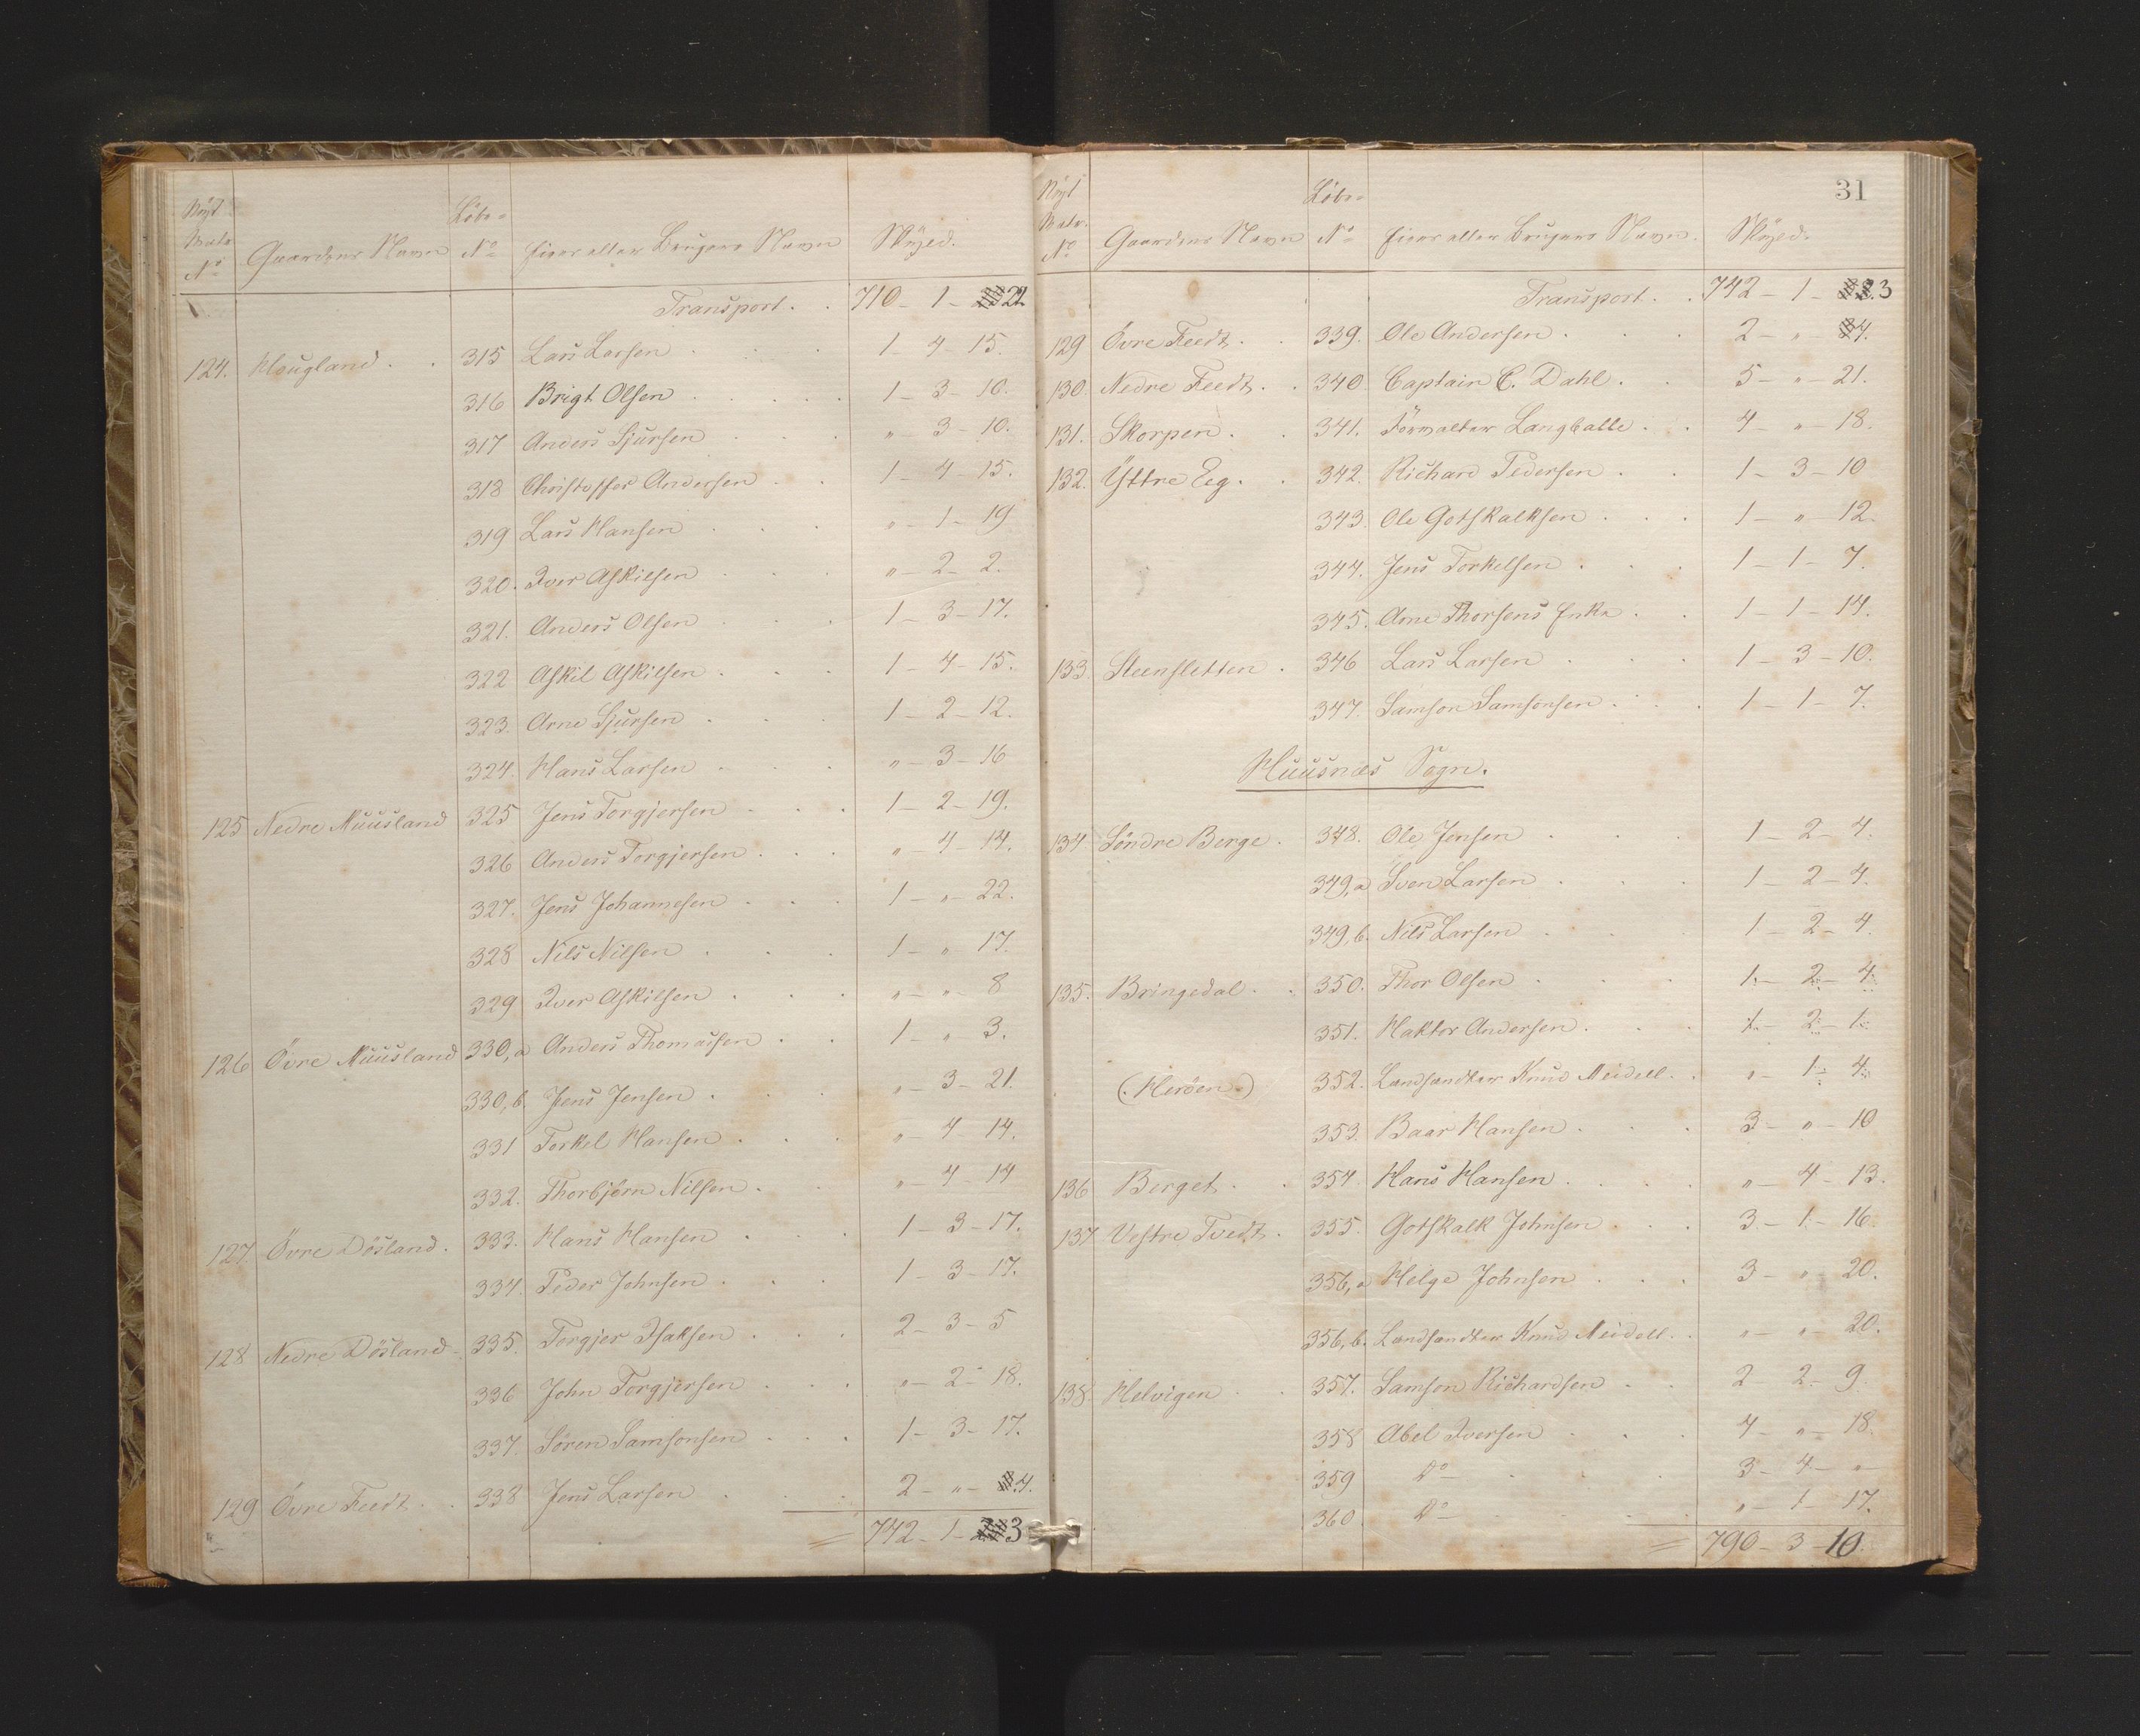 Nÿt
Matr. Löbe-
No Gaardens Navn No Eier eller Brugers Navn Skÿld.
Transport . . 710 - 1 - 22
124. Hougland . . 315 Lars Larsen . . . 1 - 4 - 15.
316 Brigt Olsen . . . . 1 - 3 - 10.
317 Anders Sjursen . . . " - 3 - 10.
318 Christoffer Andersen . . 1 - 4 - 15.
319 Lars Hansen . . . " - 1 - 19
320. Iver Askilsen . . . " - 2 - 2.
321. Anders Olsen . . . 1 - 3 - 17.
322 Askil Askilsen . . . 1 - 4 - 15.
323. Arne Sjursen . . . 1 - 2 - 12.
324. Hans Larsen . . . " - 3 - 16
125 Nedre Muusland 325 Jens Torgjersen . . . 1 - 2 - 19.
326 Anders Torgjersen . . . " - 4 - 14.
327. Jens Johannesen . . . 1 - " - 22.
328 Nils Nilsen . . . 1 - " 17.
329 Iver Askilsen . . . " - " - 8
126 Övre Muusland 330, a Anders Thomassen . . 1 - " 3.
330, b. Jens Jensen . . . " - 3 - 21.
331 Torkel Hansen . . . " - 4 - 14.
332. Thorbjörn Nilsen . . " - 4 - 14
127 Övre Dösland . 333. Hans Hansen . . . 1 - 3 - 17.
334. Peder Johnsen . . . 1 - 3 - 17.
128 Nedre Dösland - 335. Torgjer Isaksen . . . 2 - 3 - 5
336 John Torgjersen . . . " - 2 - 18.
337. Sören Samsonsen . . . 1 - 3 - 17.
129 Övre Feedt . . 338 Jens Larsen . . . 2 - " - 4.
= 742 - 1 - 3
31
Nÿt
Matr. Löbe-
No Gaardens Navn No Eier eller Brugers Navn. Skÿld.
Transport . . 742 - 1 - 3
129 Övre Feedt . . 339. Ole Andersen . . . 2 - " - 4.
130 Nedre Feedt . . 340 Captain C. Dahl . . 5 - " - 21.
131. Skorpen . . 341. Forvalter Langballe . . 4 - " - 18.
132. Ÿttre Eeg . . 342. Richard Pedersen . . 1 - 3 - 10
343. Ole Gotskalksen . . . 1 - " - 12.
344. Jens Torkelsen . . . 1 - 1 - 7.
345. Arne Thorsens Enke . . 1 - 1 - 14.
133. Steensletten . 346 Lars Larsen . . . 1 - 3 - 10.
347. Samson Samsonsen . . . 1 - 1 - 7.
Huusnæs Sogn.
134 Söndre Berge . 348. Ole Jensen . . . 1 - 2 - 4.
349, a Sven Larsen . . . 1 - 2 - 4.
349, b. Nils Larsen . . . 1 - 2 - 4.
135. Bringedal . . 350. Thor Olsen . . . 1 - 2 - 4.
351. Haktor Andersen . . . 1 - 2 - 1.
(Heröen.) 352. Landhandler Knud Meidell . . " - 1 - 4.
353. Baar Hansen . . . 3 - " - 10
136 Berget . . 354 Hans Hansen . . . . " - 4 - 13.
137 Vestre Tvedt . 355. Gotskalk Johnsen . . . 3 - 1 - 16
356, a Helge Johnsen . . . 3 - " 20.
356, b. Landhandler Knud Meidell . . " - " - 20.
138. Helvigen . . 357. Samson Richardsen . . 2 2 - 9
358 Abel Iversen . . . 4 - " - 18.
359 Do . . . 3 - 4 - "
360. Do - . . . " - 1 - 17.
= 790 - 3 - 10.